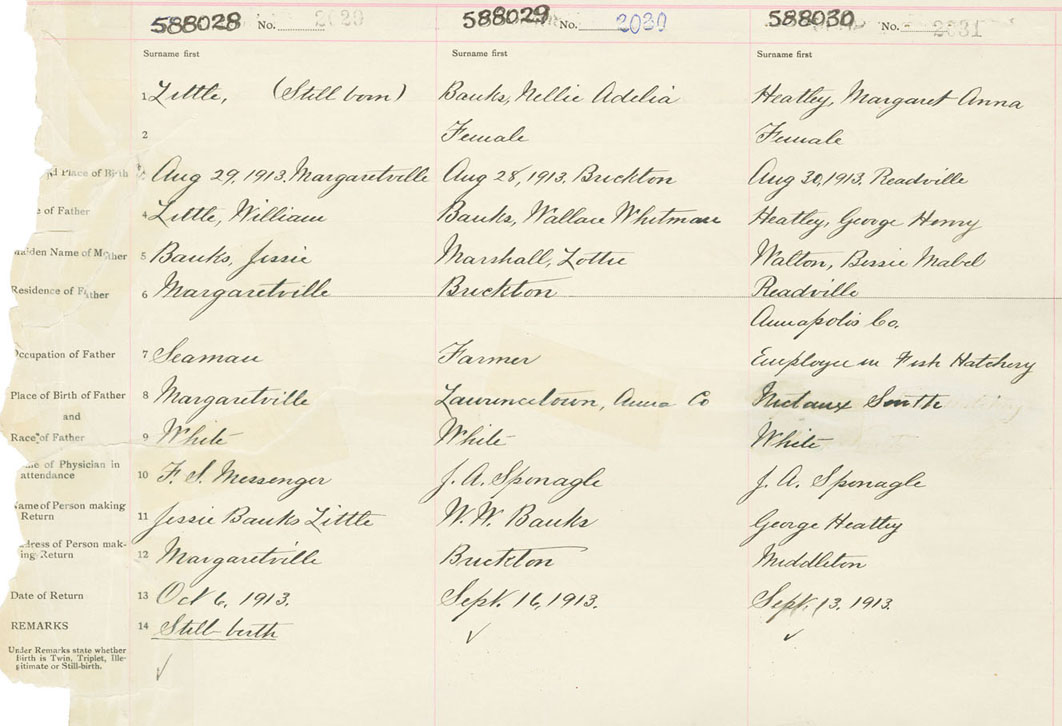 588028 No. 2029 588029 No. 2030 588030 No. 2031
Surname first Surname first Surname first
1 Little, (Still born) Banks, Nellie Adelia Heatley, Margaret Anna
2 Female Female
Place of Birth 3 Aug 29, 1913. Margaretville Aug 28, 1913. Brickton Aug 30, 1913. Readville
of Father 4 Little, William Banks, Wallace Whitman Heatley, George Henry
Maiden Name of Mother 5 Banks, Jessie Marshall, Lottie Walton, Bessie Mabel
Residence of Father 6 Margaretville Brickton Readville
Annapolis Co.
Occupation of Father 7 Seaman Farmer Employee in Fish Hatchery
Place of Birth of Father 8 Margaretville Lawrencetown, Anna Co Nictaux South
and
Race of Father 9 White White White
Name of Physician in
attendance 10 F. S. Messenger J. A. Sponagle J. A. Sponagle
Name of Person making
Return 11 Jessie Banks Little W. W. Banks George Heatley
Address of Person mak-
ing Return 12 Margaretville Brickton Middleton
Date of Return 13 Oct 6, 1913. Sept. 16, 1913. Sept. 13. 1913.
REMARKS 14 Still-birth
Under Remarks state whether
Birth is Twin, Triplet, Ille-
gitimate or Still-birth.